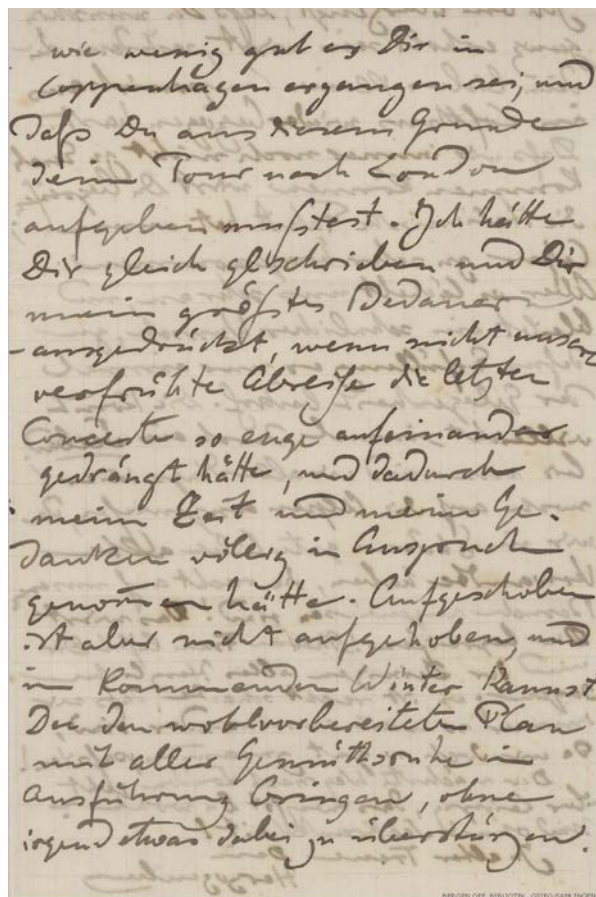 wie wenig gut es Dir in
Coppenhagen ergangen sei, und
daß Du aus diesem Grunde
deine Tour nach London
aufgeben mußtest. Ich hätte
Dir gleich geschrieben und Dir
mein größtes Bedauern
ausgedrückt, wenn nicht unsere
verfrühte Abreise die letzten
Concerte so enge aufeinander
gedrängt hätte, und dadurch
meine Zeit und meine Ge-
danken völlig in Anspruch
genom̅en hätte. Aufgeschoben
ist aber nicht aufgehoben, und
im kommenden Winter kannst
Du den wohlvorbereiteten Plan
mit aller Gemüthsruhe in
Ausführung bringen, ohne
irgend etwas dabei zu überstürzen.
BERGEN OFF. BIBLIOTEK. GRIEG-SAMLINGEN